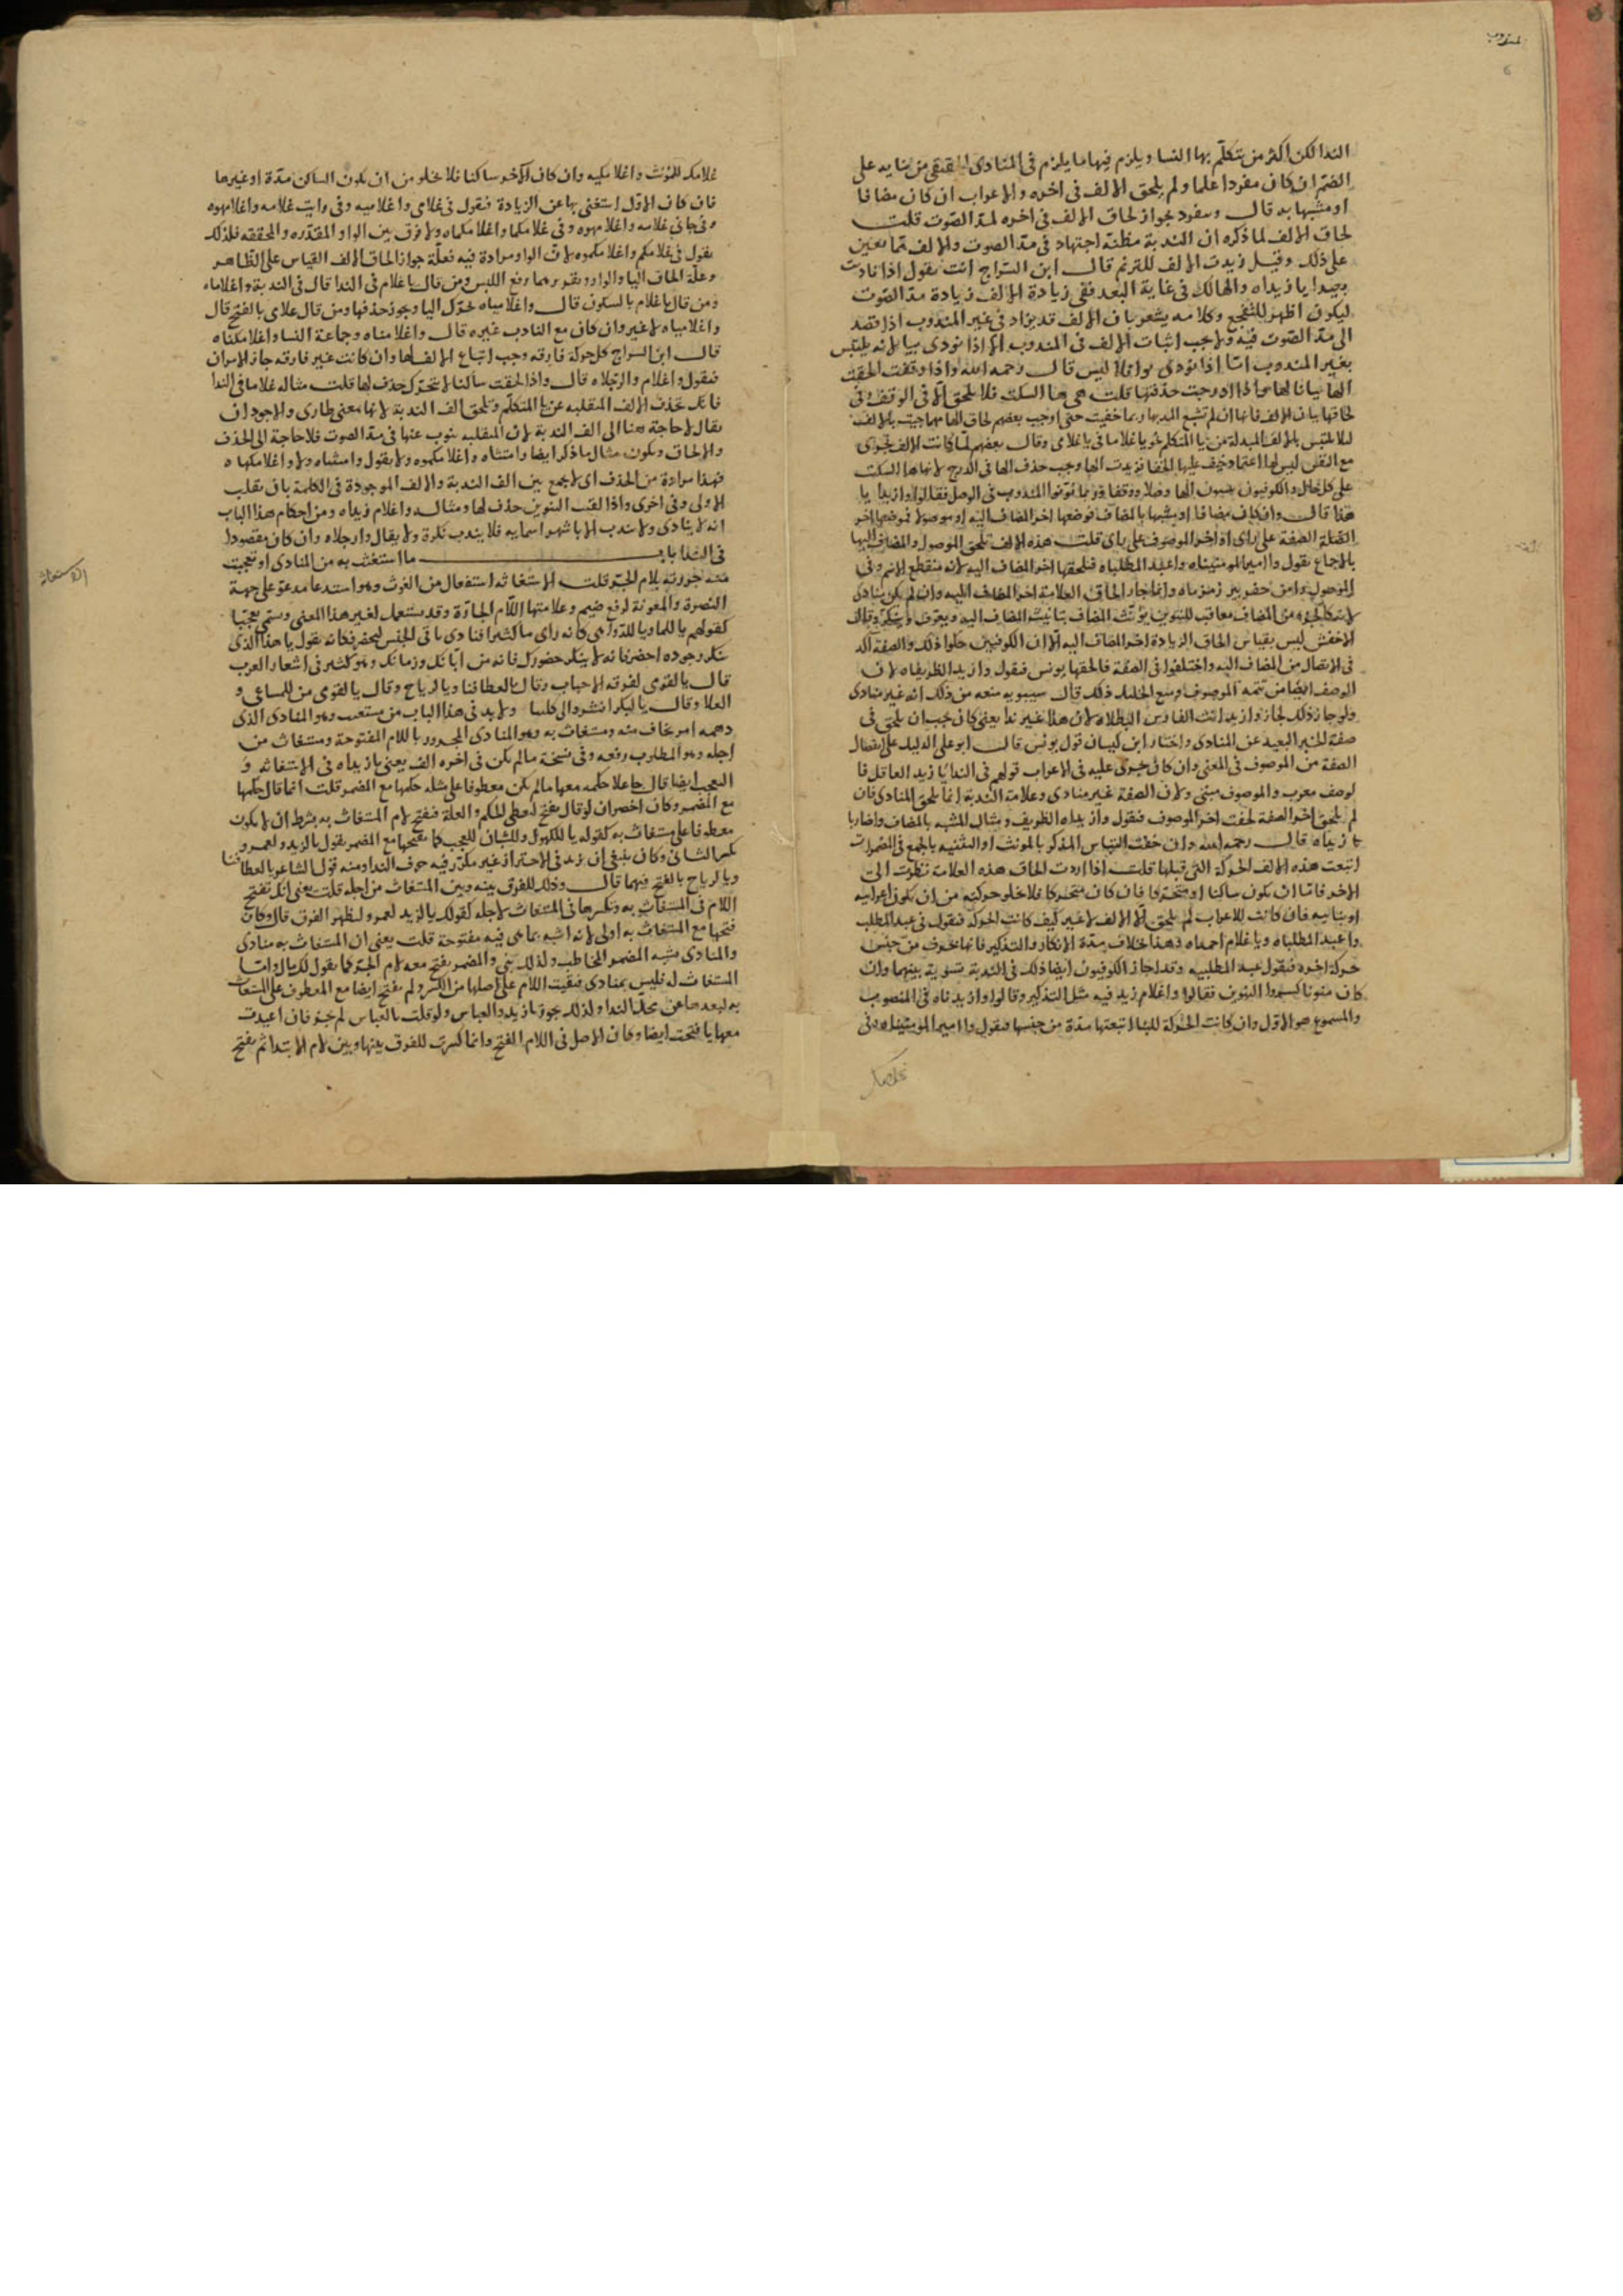 المندوب
الندا لكن اكثر من يتكلم بها النسا ويلزم فيها ما يلزم في المنادى من بنايه على
الضم ان كان مفردا علما ولم يلحق الالف في اخره والاعراب ان كان مضافا
او مشبها به قال وينفرد بجواز لحاق الالف في اخره لمد الصوت قلت
لحاق الالف لما ذكره ان الندبة مظنة اجتهاد في مد الصوت والالف مما تعين
على ذلك وقيل زيدت الالف للترنم قال ابن السراج انت تقول اذا ناديت
بعيدا يا زيداه والهالك في غاية البعد ففي زيادة الالف زيادة مد الصوت
ليكون اظهر للتفجع وكلامه يشعر بان الالف قد يزاد في غير المندوب اذا قصد
الى مد الصوت فيه ولا يجب اثبات الالف في المندوب الا اذا نودي بيا لانه يلتبس
بغير المندوب اما اذا نودي بوا فلا ليس قال رحمه الله واذا وقفت الحقت
الها بيانا لها واذا ادرجت حذفتها قلت هي ها السكت فلا يلحق الا في الوقف وفي
لحاقها بيان الالف فانها ان لم تشبع المد بها ربما خفيت حتى اوجب بعضهم لحاق الها
ليلا تلتبس بالالف المبدلة من يا المتكلم نحو يا غلاما في يا غلامي وقال بعضهم لما كانت الالف تهوى
مع النفس ليس لها اعتماد وخيف عليها الخفا فزيدت الها وجب حذف الها في الدرج لانها ها السكت
على كل حال والكوفيون يثبتون الها وصلا ووقفا وربما نونوا المندوب في الوصل فقالوا وا زيدا يا
هذا قال وان كان مضافا او مشبها بالمضاف فوضعها اخر المضاف اليه او موصولا فموضعها اخر
الصلة الصفة على راي اذ اخر الموصوف على راي قلت هذه الالف تلحق الموصول والمضاف اليها
بالاجماع تقول وا امير المومنيناه وا عبد المطلباه فتلحقها اخر المضاف اليه لانه منقطع الاسم وفي
الموصول وا من حفر بير زمزماه وانما جاز الحاق العلامة اخر المضاف اليه وان لم يكن منادى
لانه كالجزء من المضاف معاقب للتنوين يؤنث المضاف بتانيث المضاف اليه ويعرف وينكر وقال
الاخفش ليس بقياس الحاق الزيادة اخر المضاف اليه الا ان الكوفيين حلوا ذلك والصفة اكد
في الاتصال من المضاف اليه واختلفوا في الصفة فالحقها يونس فيقول وا زيد الظريفاه لان
الوصف ايضا من تتمة الموصوف ومنع الخليل ذلك قال سيبويه منعه من ذلك انه غير منادى
ولو جاز ذلك لجاز وا زيد انت الفارس البطلاه لان هذا غير ندا يعني كان يجب ان يلحق في
صفة الخبر البعيد عن المنادى واختار ابن كيسان قول يونس قال ابو علي الدليل على انفصال
الصفة من الموصوف في المعنى وان كان يجرى عليه في الاعراب قولهم في الندا يا زيد العاقل فا
لوصف معرب والموصوف مبني ولان الصفة غير منادى وعلامة الندبة انما يلحق المنادى فان
لم يلحق اخر الصفة لحقت اخر الموصوف فيقول وا زيداه الظريف ومثال المشبه بالمضاف وا ضاربا
زيداه قال رحمه الله وان خفت التباس المذكر بالمونث او التثنيه بالجمع في المضمرات
اتبعت هذه الالف الحركة التي قبلها قلت اذا اردت الحاق هذه العلامة نظرت الى
الاخر فاما ان يكون ساكنا او متحركا فان كان متحركا فلا يخلو حركته من ان تكون اعرابيه
او بنائيه فان كانت للاعراب لم يلحق الا الالف لا غير كيف كانت الحركة فيقول في عبد المطلب
وا عبد المطلباه ويا غلام احمداه وهذا خلاف مدة الانكار والتذكير فانها بحرف من جنس
حركة اخره فيقول عبد المطلبيه وقد اجاز الكوفيون ايضا ذلك في الندبة تسوية بينهما وان
كان منونا كسروا التنوين فقالوا وا غلام زيدنيه مثل التذكير وقالوا وا زيدناه في المنصوب
والمسموع هو الاول وان كانت الحركة للبنا اتبعتها مدة من جنسها فيقول وا امير المومنيناه وفي
غلامك
غلامك للمونث وا غلامكيه وان كان الاخر ساكنا فلا يخلو من ان يكون الساكن مدة او غيرها
فان كان الاول استغنى بها عن الزيادة فيقول في غلامي وا غلاميه وفي رايت غلامه وا غلامهوه
وفي جاني غلامه وا غلامهوه وفي غلامكما وا غلامكماه ولا فرق بين الواو المقدره والمحققه فلذلك
يقول في غلامكم وا غلامكموه لان الواو مرادة فيه فعلة جواز الحاق الالف القياس على الظاهر
وعلة الحاق اليا والواو وتقريرهما رفع اللبس ومن قال يا غلام في الندا قال في الندبة وا غلاماه
ومن قال يا غلامي بالسكون قال وا غلامياه تحرك اليا ويجوز حذفها ومن قال غلامي بالفتح قال
وا غلامياه لا غير وان كان مع النادب غيره قال وا غلامناه وجماعة النسا وا غلامكناه
قال ابن السراج كل حركة فارقه وجب اتباع الالف لها وان كانت غير فارقه جاز الامران
فيقول وا غلام والرجلاه قال واذا لحقت ساكنا لا يتحرك حذف لها قلت مثاله غلاما في الندا
فانك تحذف الالف المنقلبه عن يا المتكلم وتلحق الف الندبة لانها معنى طارى والاجود ان
يقال لا حاجة هنا الى الف الندبة لان المنقلبه ينوب عنها في مد الصوت فلا حاجة الى الحذف
والالحاق ويكون مثال ما ذكر ايضا وا مثناه وا غلامكموه ولا يقول وا مثناه ولا وا غلامكماه
فهذا مراده من الحذف اى لا يجمع بين الف الندبة والالف الموجودة في الكلمة بان تقلب
الاولى وفي اخرى واذا لقيت التنوين حذف لها ومثاله وا غلام زيداه ومن احكام هذا الباب
انه لا ينادى ولا يندب الا باشهر اسمايه فلا يندب نكرة ولا يقال وا رجلاه وان كان مقصودا
في الندا باب ما استغثت به من المنادى او تعجبت
منه جررته بلام الجر قلت الاستغاثه استفعال من الغوث وهو استدعا مدعو على جهة
النصرة والمعونة لرفع ضيم وعلامتها اللام الجارة وقد يستعمل لغير هذا المعنى ويسمى تعجبا
كقولهم يا للما ويا للدواهي كانه راى ما كثيرا فنادى باقى الجنس ليحضر فكانه يقول يا هذا الذي
ينكر وجوده احضر فانه لا ينكر حضورك فانه من ابانك وزمانك وهو كثير في اشعار العرب
قال يا لقومي لفرقة الاحباب وقال يا لعطافنا ويا لرياح وقال يا لقومي من للمساعي و
العلا وقال يا لبكر انشروا لي كليبا ولا بد في هذا الباب من مستغيث وهو المنادى الذي
دهمه امر يخاف منه ومستغاث به وهو المنادى المجرور باللام المفتوحة ومستغاث من
اجله وهو المطلوب رفعه وفي نسخة ما لم يكن في اخره الف يعني يا زيداه في الاستغاثه و
التعجب ايضا قال جاعلا حكمه معها ما لم يكن معطوفا على مثله حكمها مع المضمر قلت انما قال حكمها
مع المضمر وكان اخصر ان لو قال بفتح لتعطى الحكم والعلة فيفتح لام المستغاث به بشرط ان لا يكون
معطوفا على مستغاث به كقوله يا للكهول وللشبان للعجب كما يفتحها مع المضمر يقول يا لزيد ولعمرو
بكسر الثاني وكان ينبغي ان يزيد في الاحتراز غير مكرر فيه حرف الندا ومنه قول الشاعر يا لعطافنا
ويا لرياح بالفتح فيهما قال وذلك للفرق بينه وبين المستغاث من اجله قلت يعني انك تفتح
اللام في المستغاث به وتكسرها في المستغاث لاجله كقولك يا لزيد لعمرو ليظهر الفرق قال وكان
فتحها مع المستغاث به اولى لانه اشبه بما هي فيه مفتوحة قلت يعني ان المستغاث به منادى
والمنادى مشبه المضمر المخاطب ولذلك بني والمضمر يفتح معه لام الجر كما يقول لك مال واما
المستغاث له فليس بمنادى فبقيت اللام على اصلها من الكسر ولم يفتح ايضا مع المعطوف على المستغاث
به لبعدها عن محل الندا ولذلك يجوز يا زيد والعباس ولو قلت يا العباس لم يجز فان اعيدت
معها يا فتحت ايضا وكان الاصل في اللام الفتح وانما كسرت للفرق بينها وبين لام الابتدا ثم يفتح
الاستغاثه